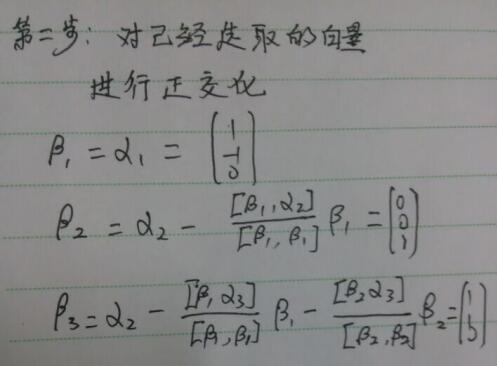 第二步: 对已经选取的向量
进行正交化
β₁ = α₁ = (1 -1 0)
β₂ = α₂ - [β₁, α₂]/[β₁, β₁] β₁ = (0 0 1)
β₃ = α₂ - [β₁ α₃]/[β₁, β₁] β₁ - [β₂ α₃]/[β₂, β₂] β₂ = (1 1 0)